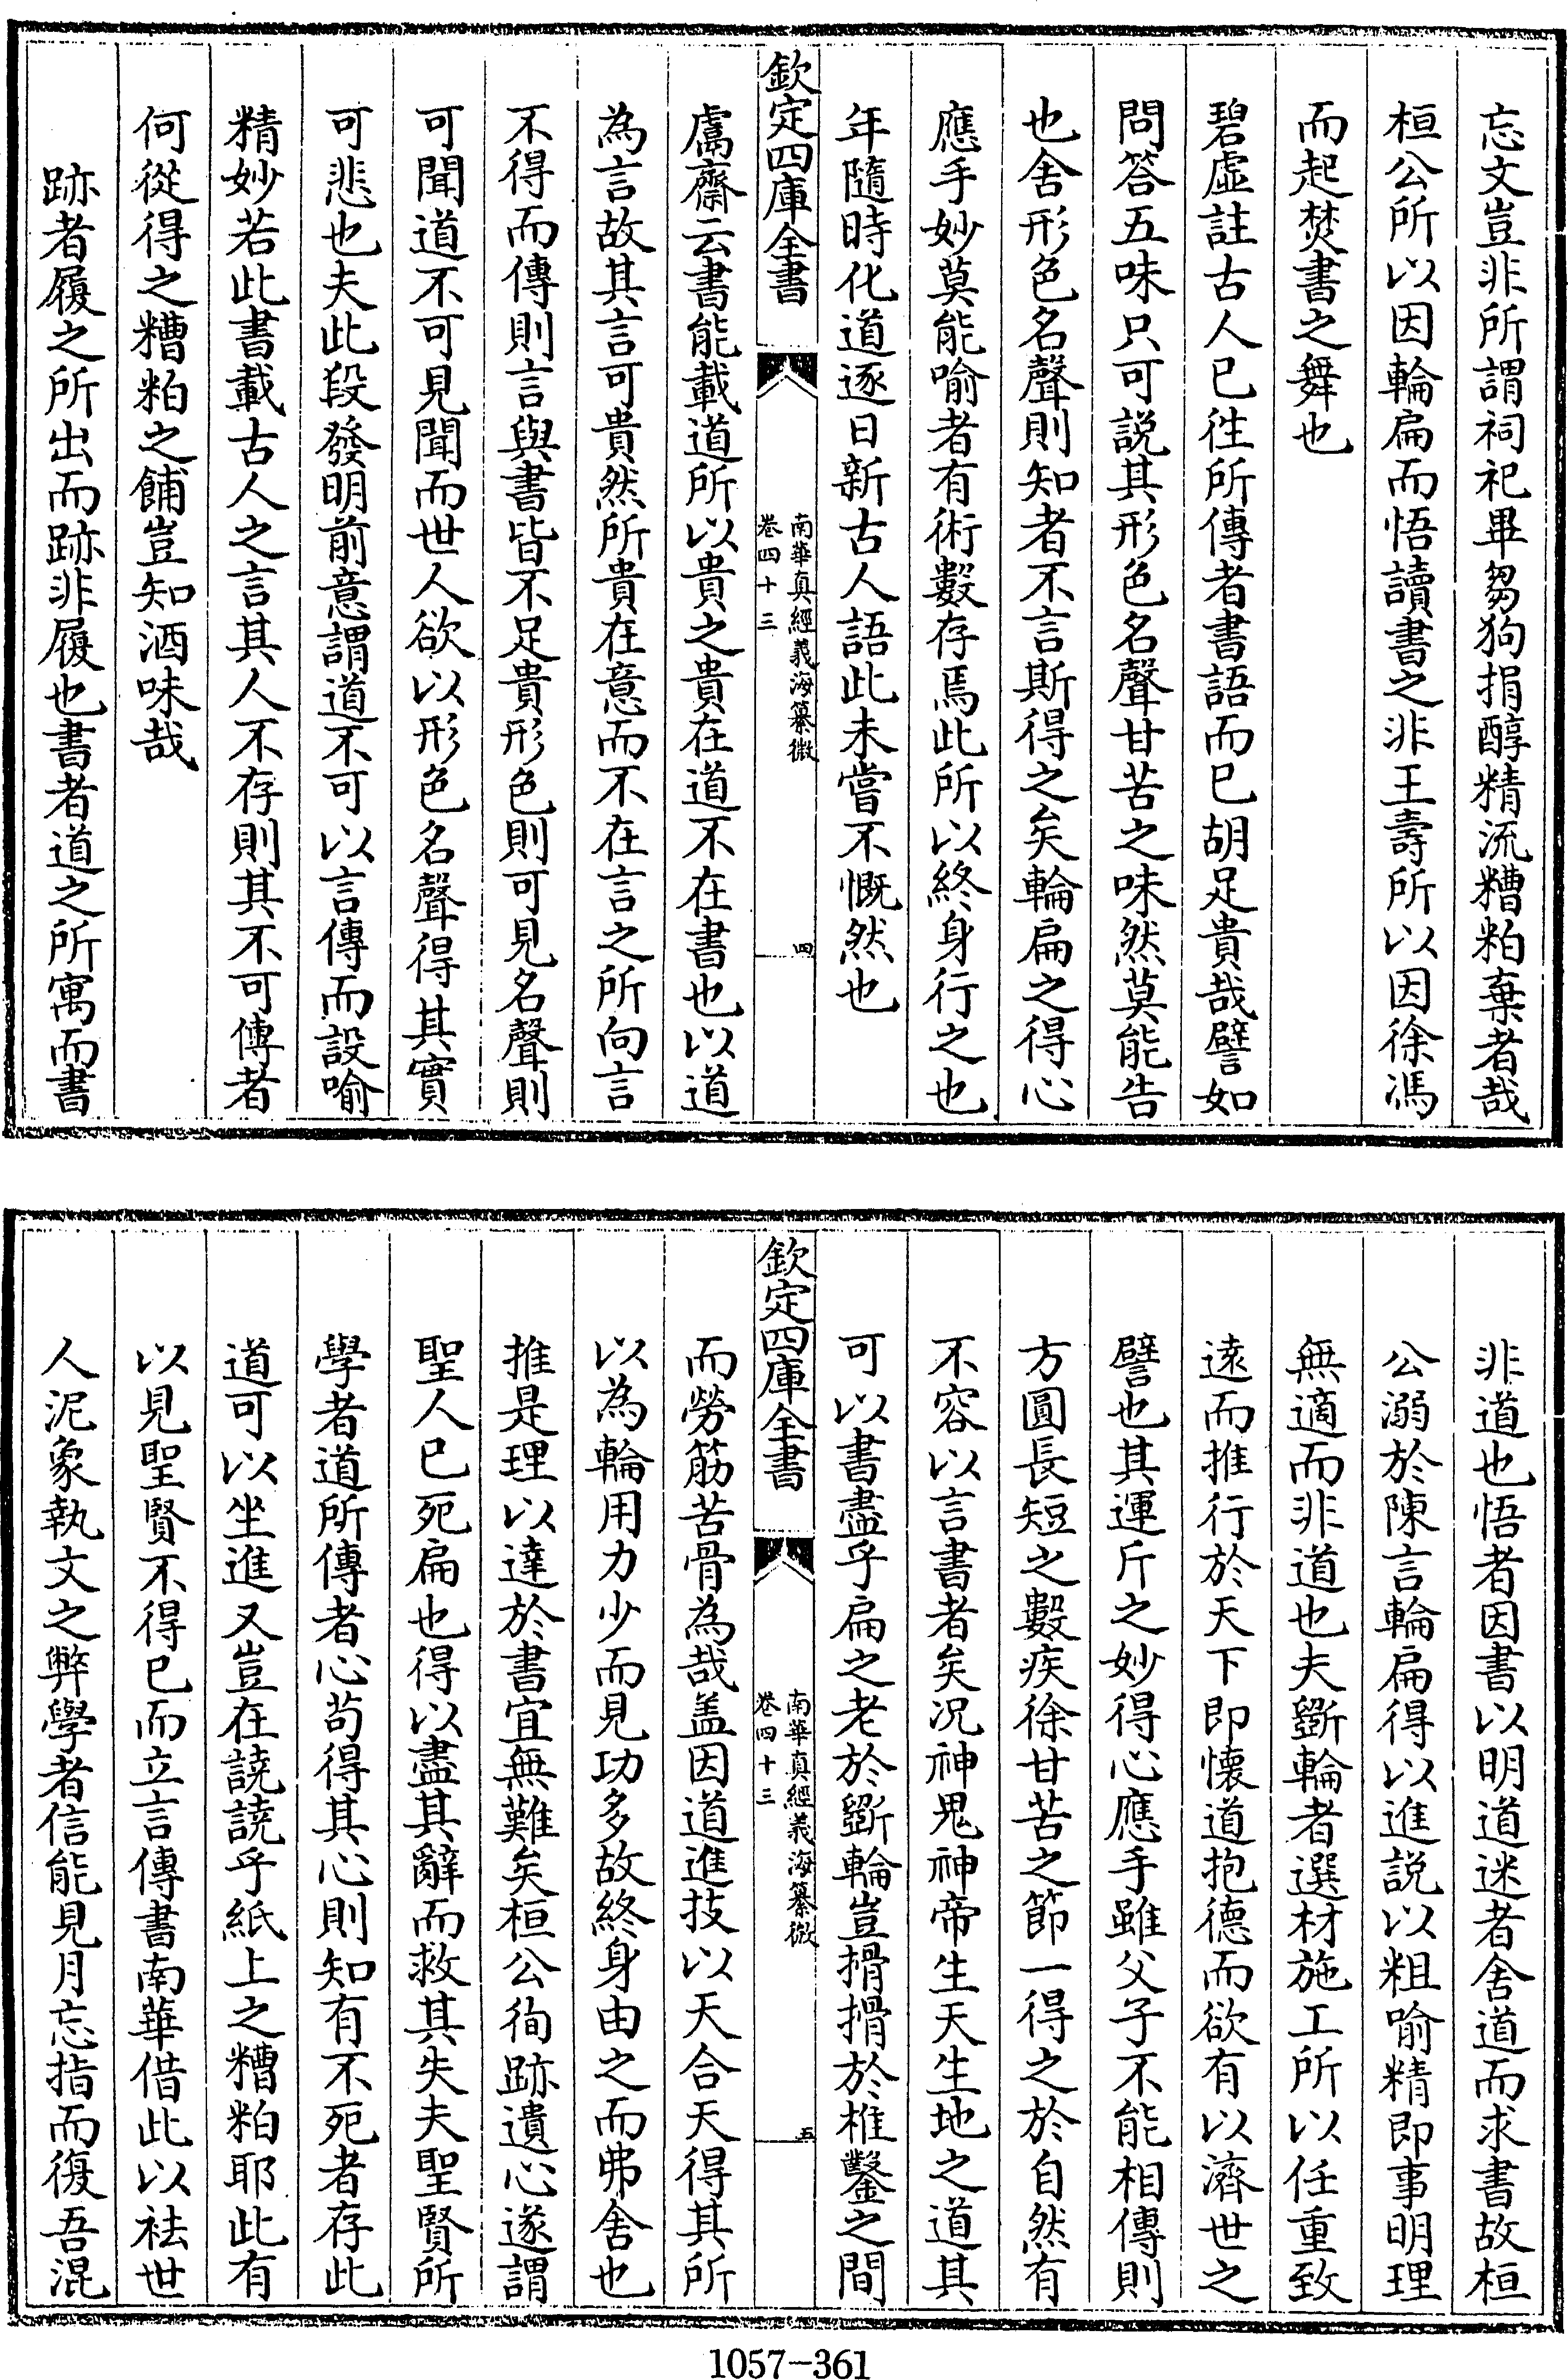 忘文豈非所謂祠祀畢芻狗捐醇精流糟粕棄者哉
桓公所以因輪扁而悟讀書之非王壽所以因徐馮
而起焚書之舞也
碧虛註古人已徃所傳者書語而已胡足貴哉譬如
問答五味只可説其形色名聲甘苦之味然莫能告
也舍形色名聲則知者不言斯得之矣輪扁之得心
應手妙莫能喻者有術數存焉此所以終身行之也
年隨時化道逐日新古人語此未嘗不慨然也
欽定四庫全書
南華真經義海纂微
卷四十三
四
鬳齋云書能載道所以貴之貴在道不在書也以道
為言故其言可貴然所貴在意而不在言之所向言
不得而傳則言與書皆不足貴形色則可見名聲則
可聞道不可見聞而世人欲以形色名聲得其實
可悲也夫此段發明前意謂道不可以言傳而設喻
精妙若此書載古人之言其人不存則其不可傳者
何從得之糟粕之餔豈知酒味哉
跡者履之所出而跡非履也書者道之所寓而書
非道也悟者因書以明道迷者舍道而求書故桓
公溺於陳言輪扁得以進説以粗喻精即事明理
無適而非道也夫斵輪者選材施工所以任重致
遠而推行於天下即懷道抱德而欲有以濟世之
譬也其運斤之妙得心應手雖父子不能相傳則
方圓長短之數疾徐甘苦之節一得之於自然有
不容以言書者矣況神鬼神帝生天生地之道其
可以書盡乎扁之老於斵輪豈搰搰於椎鑿之間
欽定四庫全書
南華真經義海纂微
卷四十三
五
而勞筋苦骨為哉盖因道進技以天合天得其所
以為輪用力少而見功多故終身由之而弗舍也
推是理以達於書宜無難矣桓公徇跡遺心遂謂
聖人已死扁也得以盡其辭而救其失夫聖賢所
學者道所傳者心茍得其心則知有不死者存此
道可以坐進又豈在譊譊乎紙上之糟粕耶此有
以見聖賢不得已而立言傳書南華借此以袪世
人泥象執文之弊學者信能見月忘指而復吾混
1057-361